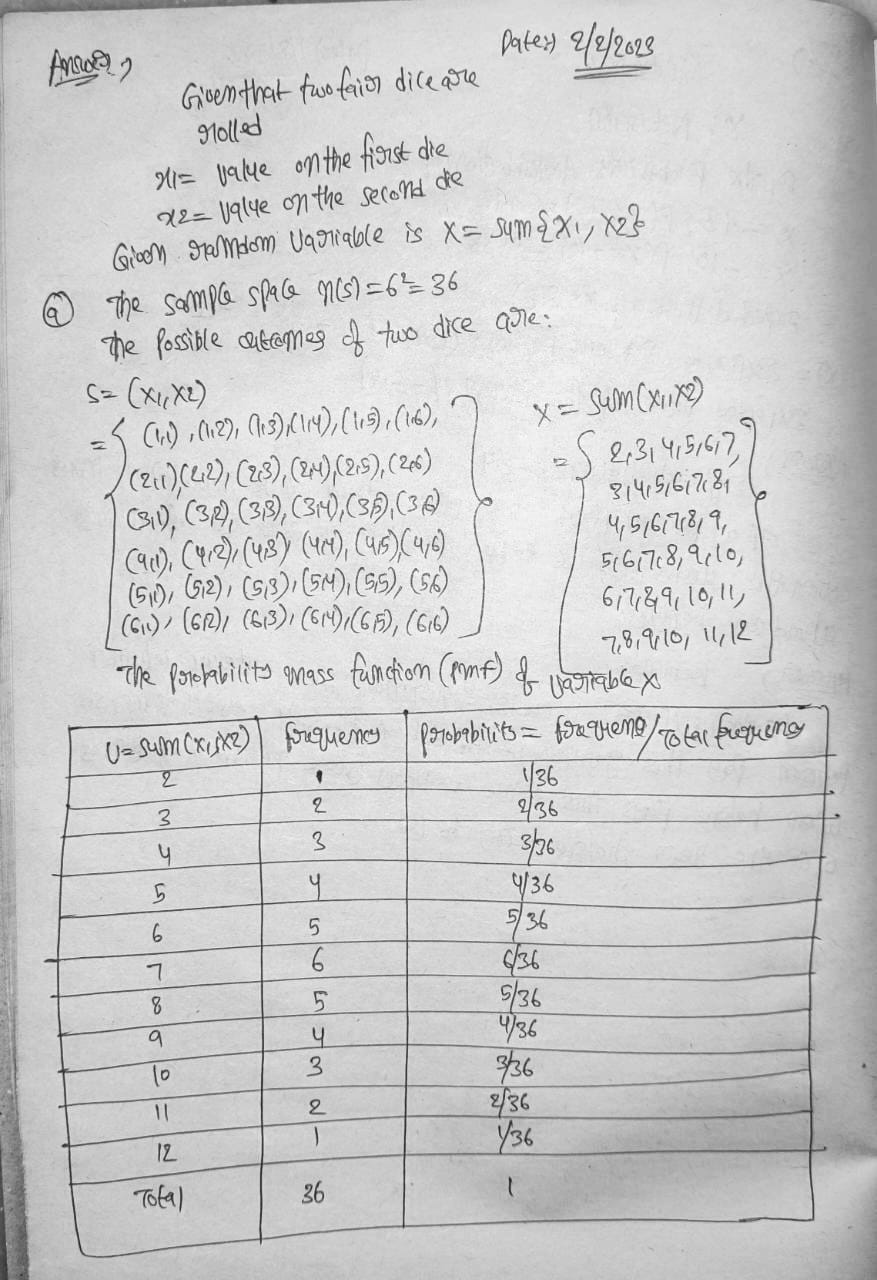 Answer,
Date:- 2/2/2023
Given that two fair dice are
rolled
x1= value on the first die
x2= value on the second die
Given random variable is x= sum{x1, x2}
(a) The sample space n(s)=6²=36
The possible outcomes of two dice are:
S= (x1, x2)
= { (1,1), (1,2), (1,3), (1,4), (1,5), (1,6),
(2,1), (2,2), (2,3), (2,4), (2,5), (2,6)
(3,1), (3,2), (3,3), (3,4), (3,5), (3,6)
(4,1), (4,2), (4,3), (4,4), (4,5), (4,6)
(5,1), (5,2), (5,3), (5,4), (5,5), (5,6)
(6,1), (6,2), (6,3), (6,4), (6,5), (6,6) }
x = sum(x1, x2)
= { 2,3,4,5,6,7,
3,4,5,6,7,8,
4,5,6,7,8,9,
5,6,7,8,9,10,
6,7,8,9,10,11,
7,8,9,10,11,12 }
The probability mass function (pmf) of variable x
U= sum(x1,x2) frequency probability = frequency/Total frequency
2 1 1/36
3 2 2/36
4 3 3/36
5 4 4/36
6 5 5/36
7 6 6/36
8 5 5/36
9 4 4/36
10 3 3/36
11 2 2/36
12 1 1/36
Total 36 1